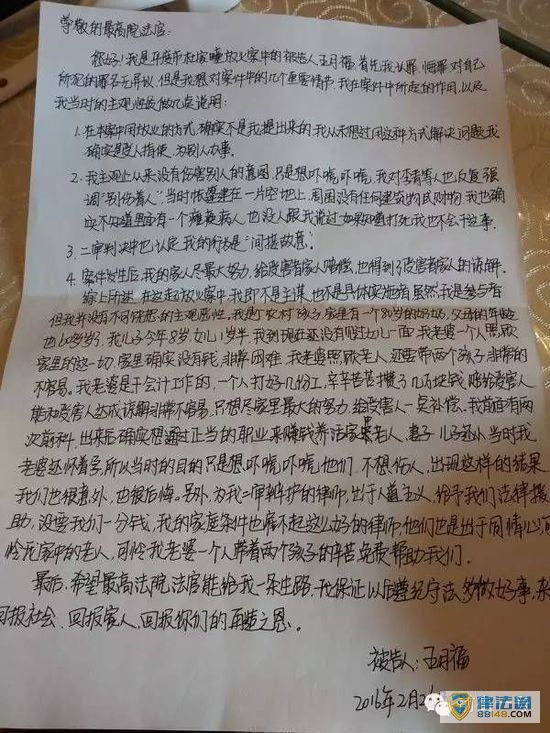 尊敬的最高院法官:
您好!我是平度市杜家疃放火案中的被告王月福,首先我认罪,悔罪对自己
所犯的罪名无异议,但是我想对案件中的几个重要情节,我在案件中所起的作用,以及
我当时的主观性质做几点说明:
1. 在本案中用放火的方式,确实不是我提出来的,我从未想过用这种方式解决问题,我
确实是受人指使,为别人办事。
2. 我主观上从来没有伤害别人的意图,只是想吓唬吓唬,我对李青等人也反复强
调"别伤着人",当时帐篷建在一片空地上,周围没有任何建筑物或财物,我也确
实不知道里面有一个瘫痪病人,也没人跟我说过,如果知道打死我也不会干这事。
3. 二审判决中也认定我的行为是"间接故意"。
4. 案件发生后,我的家人尽最大努力,给受害者家人赔偿,也得到了受害者家人的谅解。
综上所述,在这起放火案中,我即不是主谋,也不是具体实施者,虽然我是参与者
但我并没有不可饶恕的主观恶性,我是个农村孩子,家里有一个80岁的奶奶,父母的年龄
也60多岁了,我儿子今年8岁,女儿1岁半,我到现在还没有见过女儿一面,我老婆一个人照顾
家里的这一切,家里确实没有钱,非常困难,我老婆照顾老人,还要带两个孩子,非常的
不容易。我老婆是干会计工作的,一个人打好几份工,辛辛苦苦攒了几万块钱,赔给受害人,
能和受害人达成谅解非常不容易,只想尽家里最大的努力,给受害人一点补偿,我前面有两
次前科,出来后确实想通过正当的职业来赚钱养活家里老人、妻子、儿子,还从当时我
老婆还怀着孕,所以当时的目的只是想吓唬吓唬他们,不想伤人,出现这样的结果
我们也很意外,也很后悔。另外,为我二审辩护的律师,出于人道主义,给予我们法律援
助,没要我们一分钱,我的家庭条件也雇不起这么好的律师,他们也是出于同情心,可
怜我家中的老人,可怜我老婆一个人带着两个孩子的辛苦,免费帮助我们。
最后,希望最高法院法官能给我一条生路,我保证以后遵纪守法,多做好事,来
回报社会、回报家人,回报你们的再造之恩。
被告人:王月福
2016年2月2
律法网
88148.COM